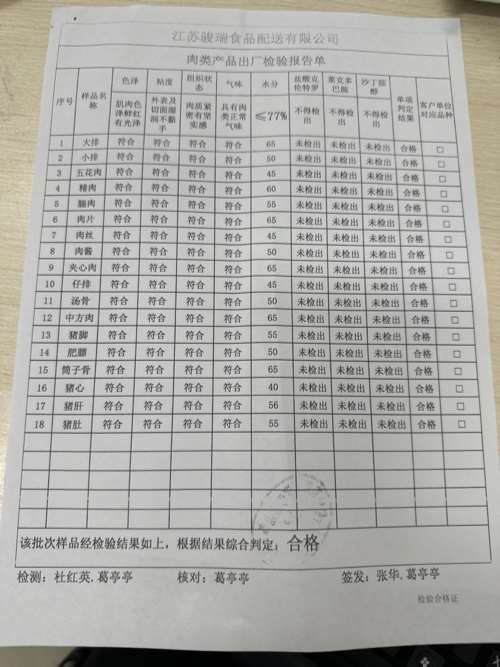 江苏骏瑞食品配送有限公司
肉类产品出厂检验报告单
序号 样品名称 色泽 粘度 组织状态 气味 水分 盐酸克伦特罗 莱克多巴胺 沙丁胺醇 单项判定结果 客户单位对应品种
肌肉色泽鲜红有光泽 外表及切面湿润不黏手 肉质紧密有坚实感 具有肉类正常气味 ≤77% 不得检出 不得检出 不得检出
1 大排 符合 符合 符合 符合 65 未检出 未检出 未检出 合格 □
2 小排 符合 符合 符合 符合 50 未检出 未检出 未检出 合格 □
3 五花肉 符合 符合 符合 符合 45 未检出 未检出 未检出 合格 □
4 精肉 符合 符合 符合 符合 60 未检出 未检出 未检出 合格 □
5 腩肉 符合 符合 符合 符合 55 未检出 未检出 未检出 合格 □
6 肉片 符合 符合 符合 符合 65 未检出 未检出 未检出 合格 □
7 肉丝 符合 符合 符合 符合 45 未检出 未检出 未检出 合格 □
8 肉酱 符合 符合 符合 符合 50 未检出 未检出 未检出 合格 □
9 夹心肉 符合 符合 符合 符合 65 未检出 未检出 未检出 合格 □
10 仔排 符合 符合 符合 符合 45 未检出 未检出 未检出 合格 □
11 汤骨 符合 符合 符合 符合 50 未检出 未检出 未检出 合格 □
12 中方肉 符合 符合 符合 符合 65 未检出 未检出 未检出 合格 □
13 猪脚 符合 符合 符合 符合 55 未检出 未检出 未检出 合格 □
14 肥膘 符合 符合 符合 符合 50 未检出 未检出 未检出 合格 □
15 筒子骨 符合 符合 符合 符合 65 未检出 未检出 未检出 合格 □
16 猪心 符合 符合 符合 符合 40 未检出 未检出 未检出 合格 □
17 猪肝 符合 符合 符合 符合 56 未检出 未检出 未检出 合格 □
18 猪肚 符合 符合 符合 符合 55 未检出 未检出 未检出 合格 □
该批次样品经检验结果如上，根据结果综合判定：合格
检测：杜红英.葛亭亭 核对：葛亭亭 签发：张华.葛亭亭
检验合格证